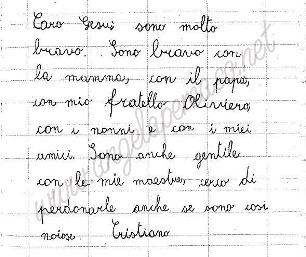 Caro Gesù sono molto
bravo. Sono bravo con
la mamma, con il papà,
con mio fratello Oliviero,
con i nonni e con i miei
amici. Sono anche gentile
con le mie maestre, cerco di
perdonarle anche se sono così
noiose Cristiano
www.angelapenzana.net